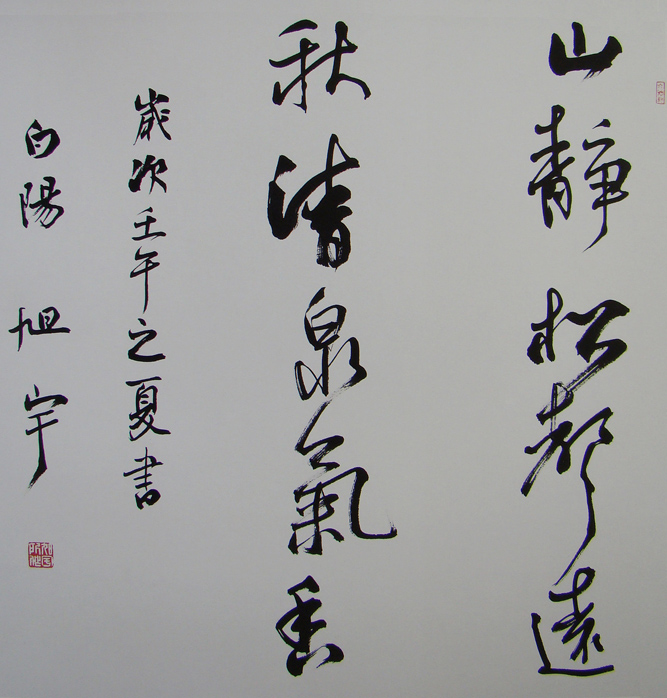 山靜松聲遠
秋清泉氣香
歲次壬午之夏書
白陽 旭宇